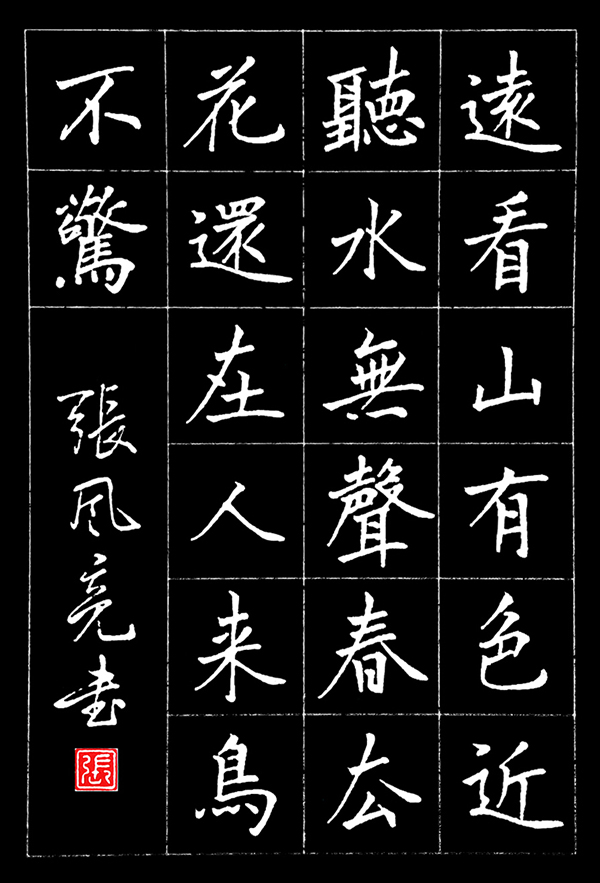 遠看山有色近
聽水無聲春厺
花還在人来鳥
不驚
張风亮书
張